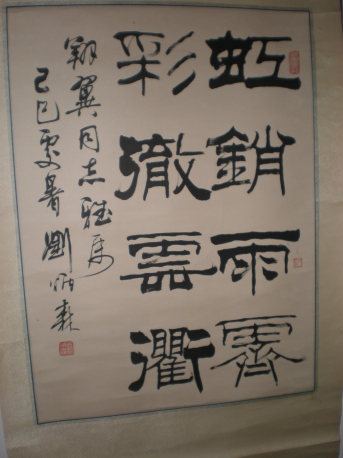 虹銷雨霽
彩徹雲衢
翔翼同志雅屬
己巳處暑劉炳森